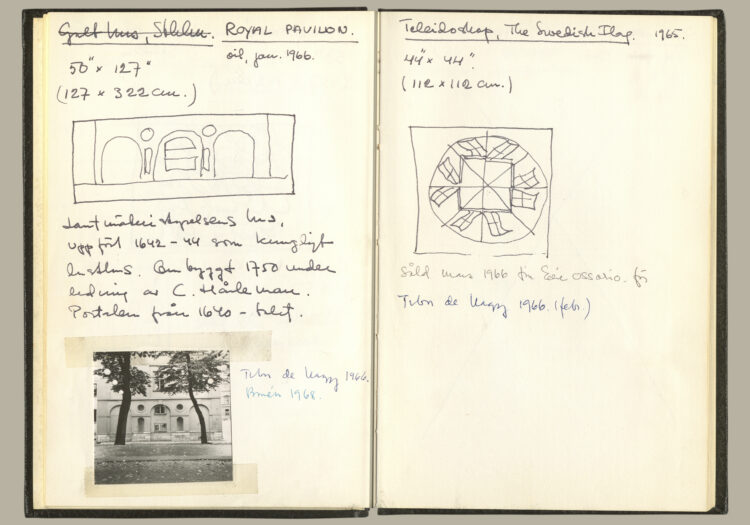 Gult hus, Sthlm. ROYAL PAVILION.
oil, jan. 1966.
50" x 127"
(127 x 322 cm.)
Lantmäteristyrelsens hus,
uppfört 1642-44 som kungligt
lusthus. Ombyggt 1750 under
ledning av C. Hårleman.
Portalen från 1640-talet.
Tibor de Nagy 1966.
Bonér 1968.
Teleidoskop, The Swedish Flag. 1965.
44" x 44"
(112 x 112 cm.)
Såld mars 1966 Ossorio. för
Tibor de Nagy 1966. (febr.)